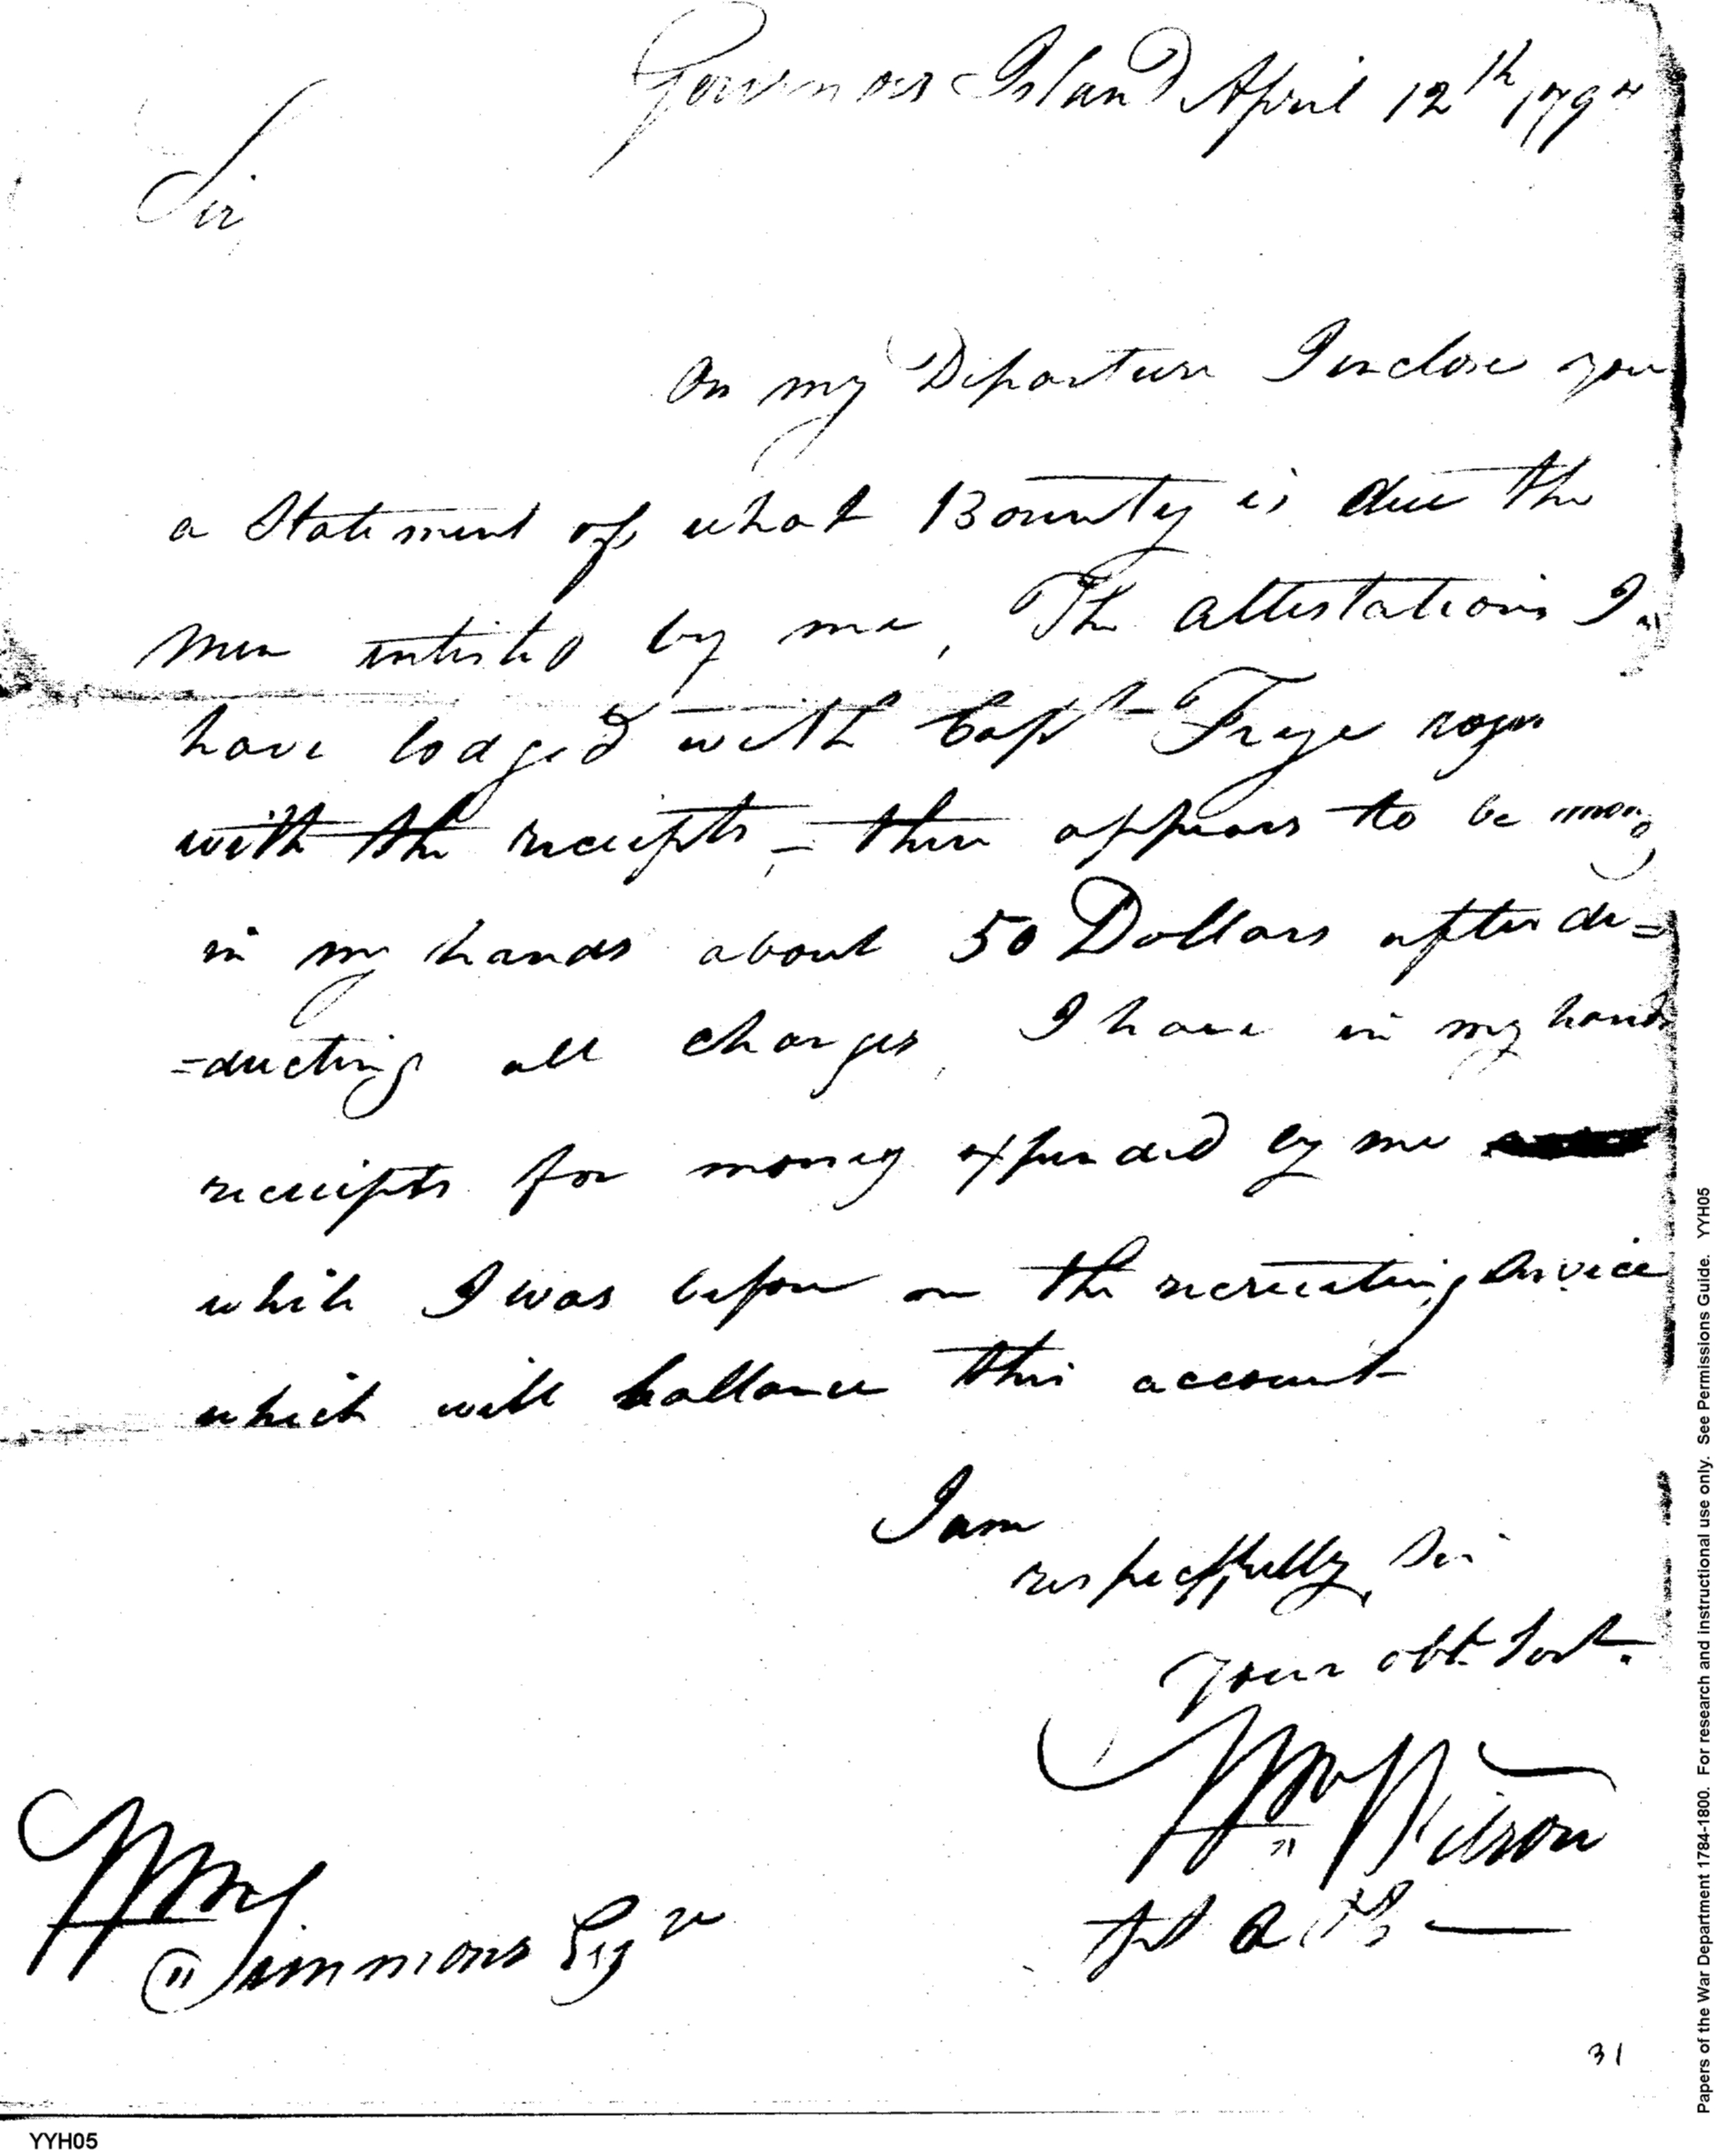 Governors Island April 12th 179
Sir,
On my Departure I enclose you
a Statement of what Bounty is due the
men entisted by me, The attestations I
have lodged with Capt Freye
with the receipts, - there appears to be
in my hands about 50 Dollars after de=
=ducting all charges, I have in my hands
receipts for money expended by me
while I was before on the recruiting Service
which will ballance this account
I am
respectfully, Sir
Your obt. Servt.
Wm Wilson
Wm Simmons Esqr
31
Papers of the War Department 1784-1800. For research and instructional use only. See Permissions Guide. YYH05
YYH05